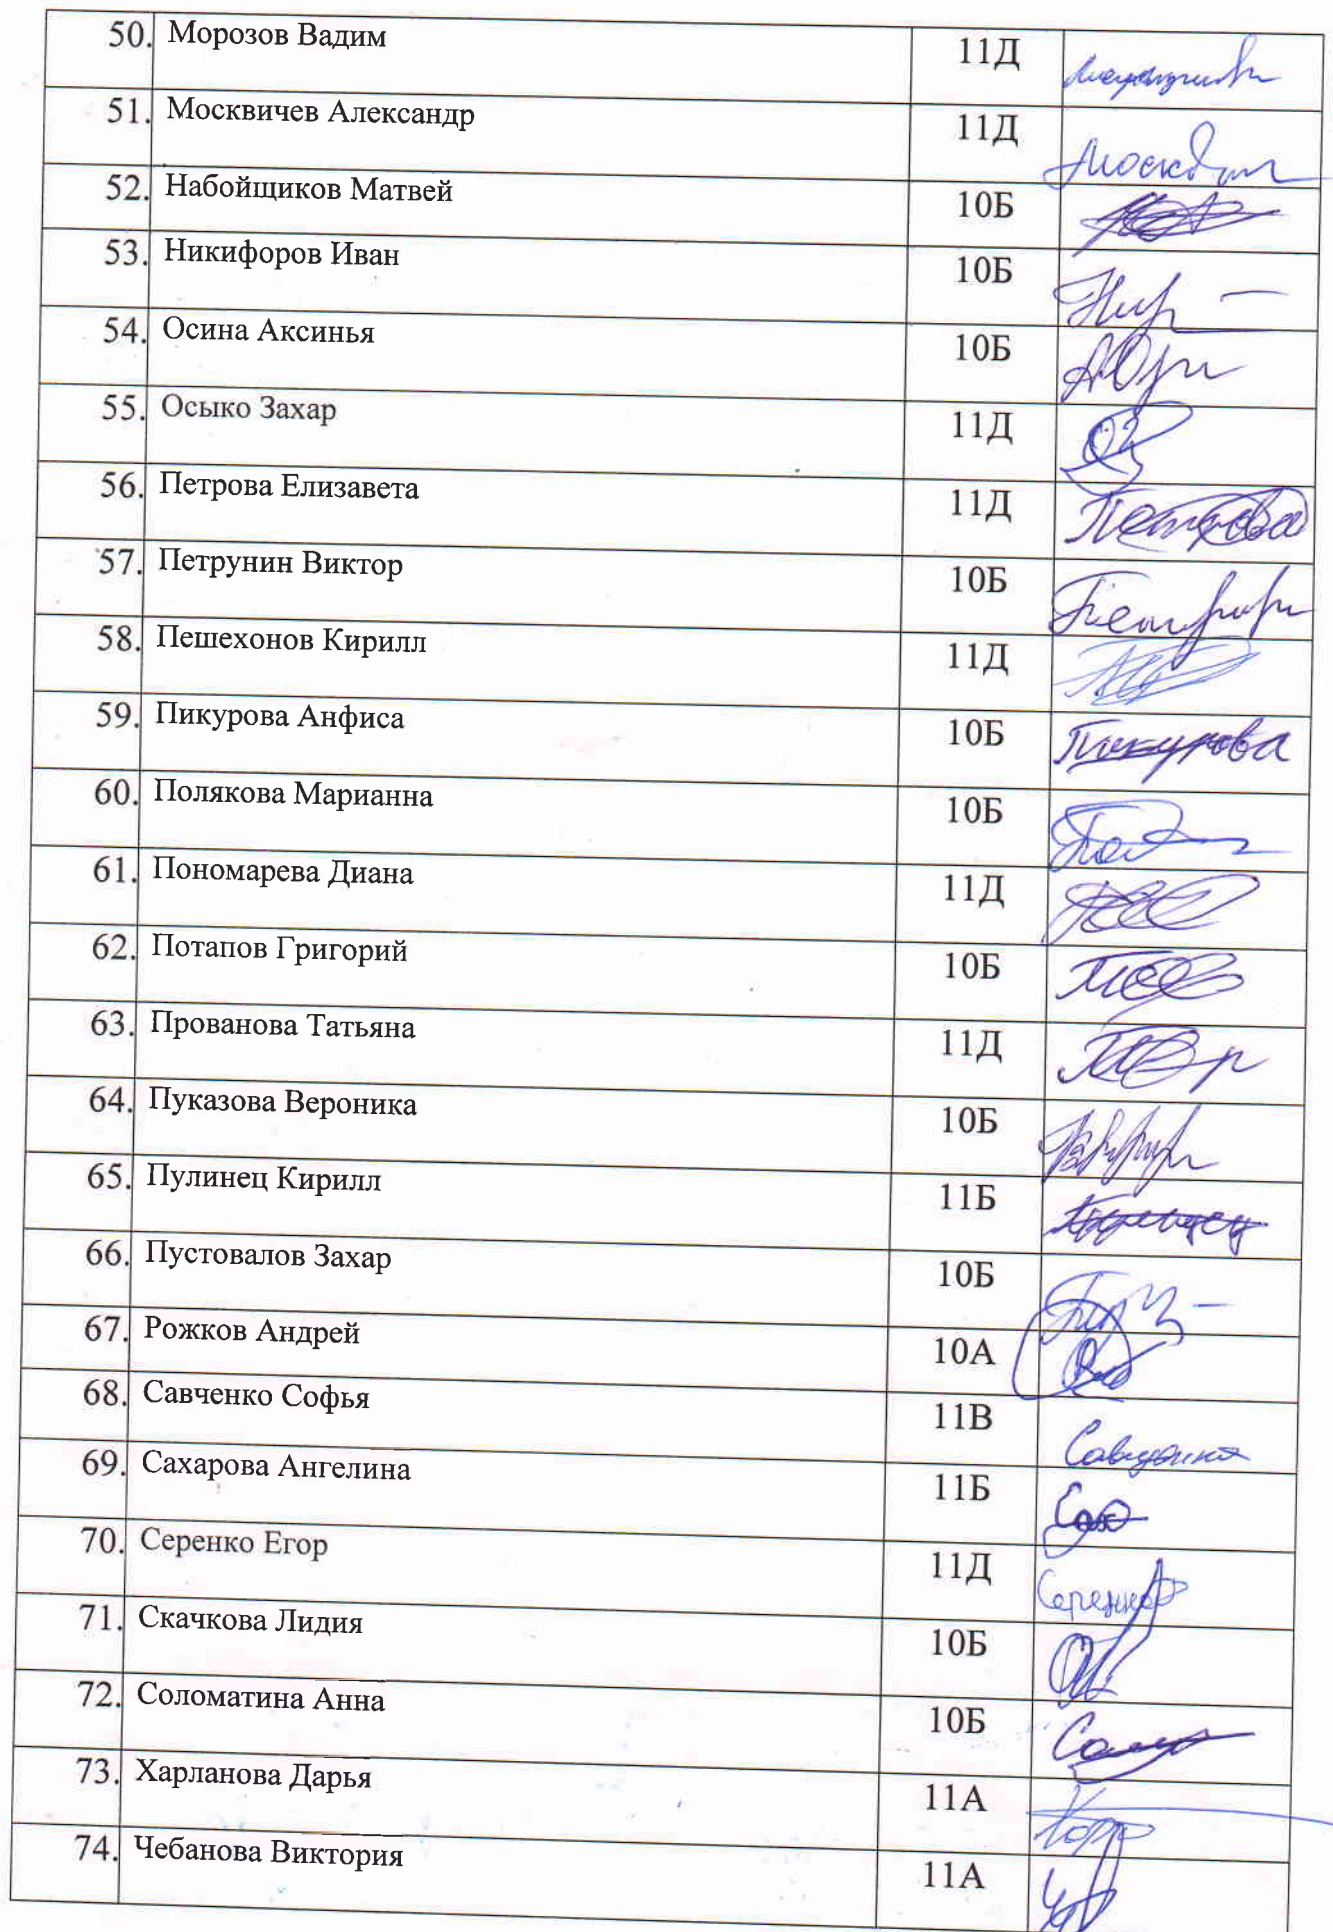 50. Морозов Вадим 11Д
51. Москвичев Александр 11Д
52. Набойщиков Матвей 10Б
53. Никифоров Иван 10Б
54. Осина Аксинья 10Б
55. Осыко Захар 11Д
56. Петрова Елизавета 11Д Петрова
57. Петрунин Виктор 10Б
58. Пешехонов Кирилл 11Д
59. Пикурова Анфиса 10Б Пикурова
60. Полякова Марианна 10Б
61. Пономарева Диана 11Д
62. Потапов Григорий 10Б
63. Прованова Татьяна 11Д
64. Пуказова Вероника 10Б
65. Пулинец Кирилл 11Б
66. Пустовалов Захар 10Б
67. Рожков Андрей 10А
68. Савченко Софья 11В
69. Сахарова Ангелина 11Б Сах
70. Серенко Егор 11Д Серенко
71. Скачкова Лидия 10Б
72. Соломатина Анна 10Б
73. Харланова Дарья 11А
74. Чебанова Виктория 11А